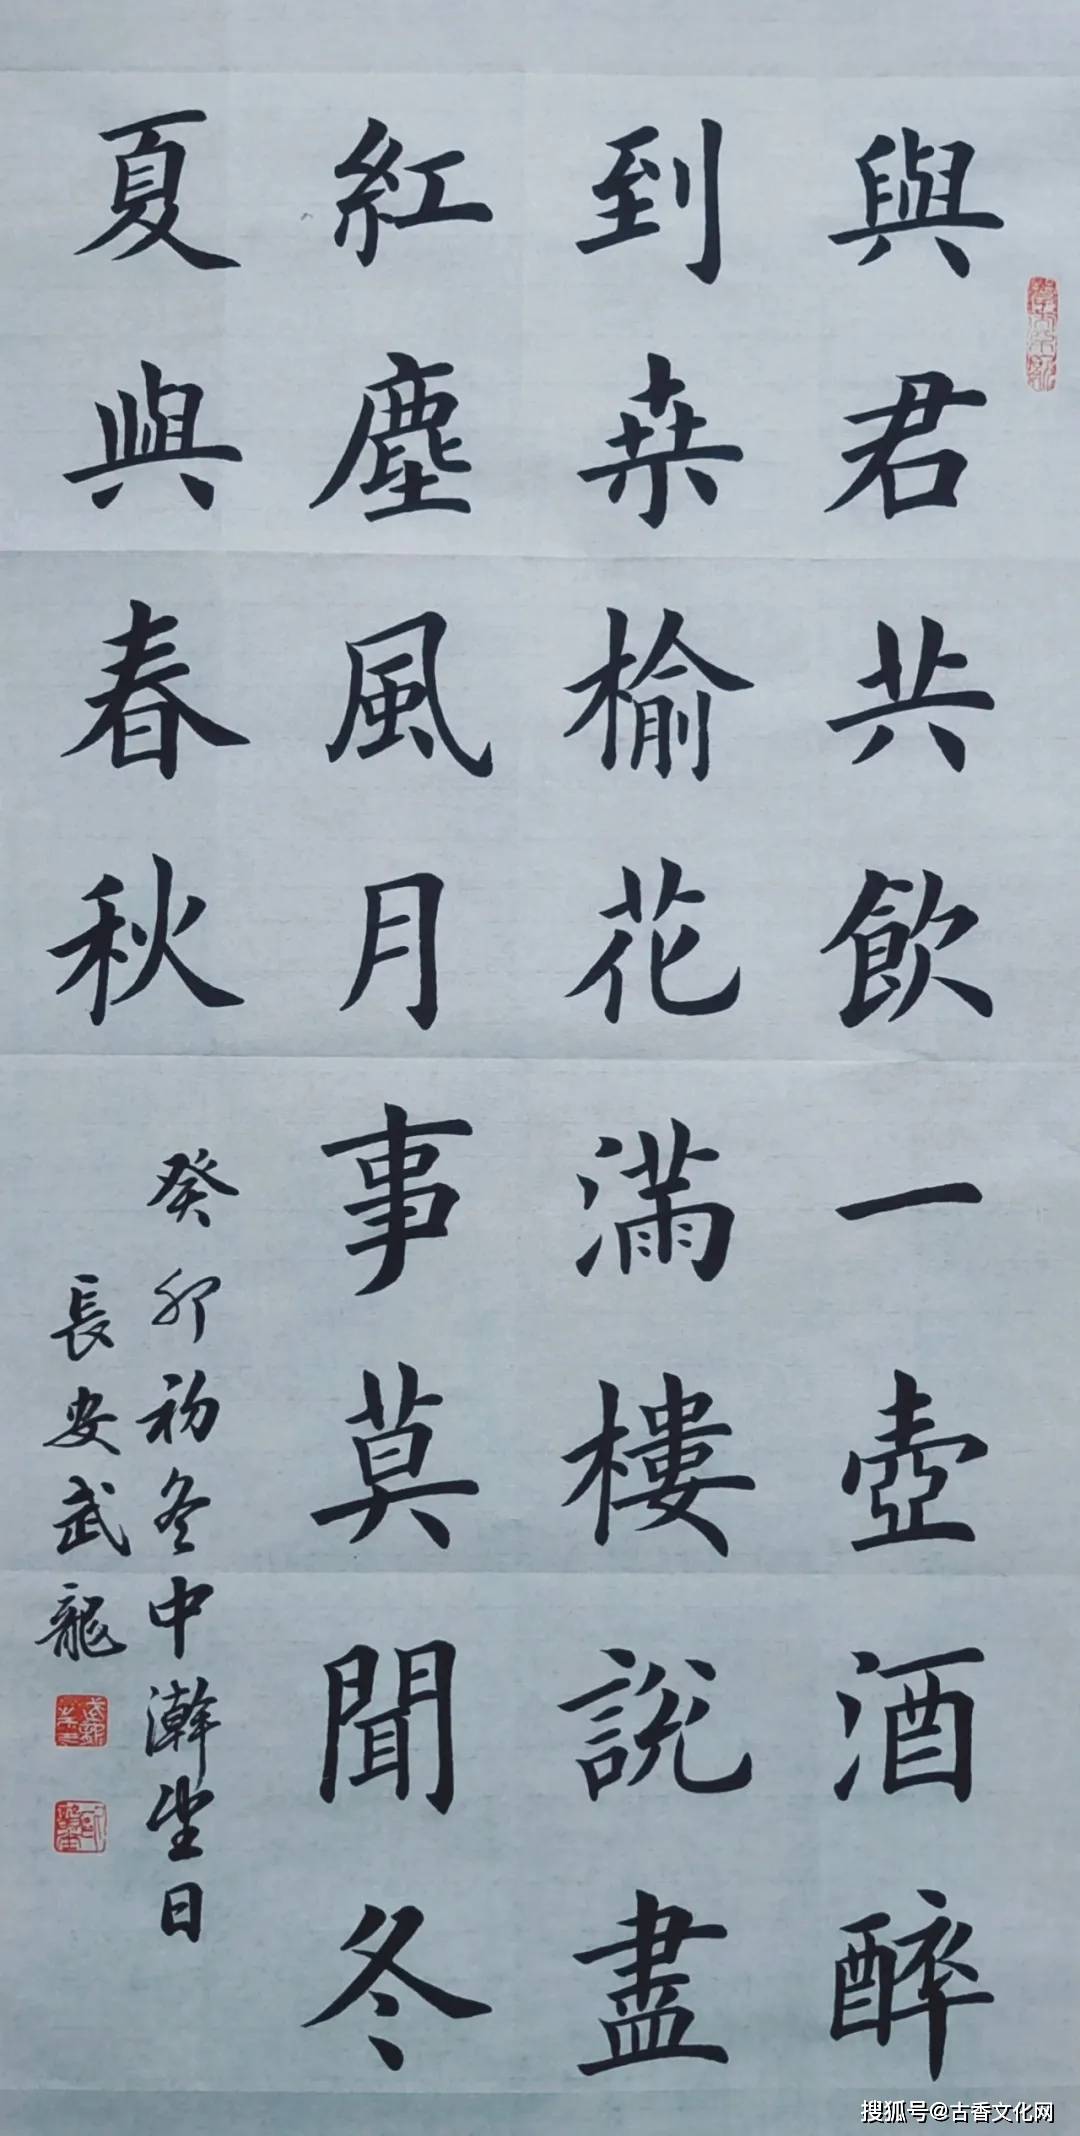 與君共飲一壺酒醉
到桒榆花滿樓說盡
紅塵風月事莫聞冬
夏與春秋
癸卯初冬中澣坐日
長安武龍
搜狐号@古香文化网